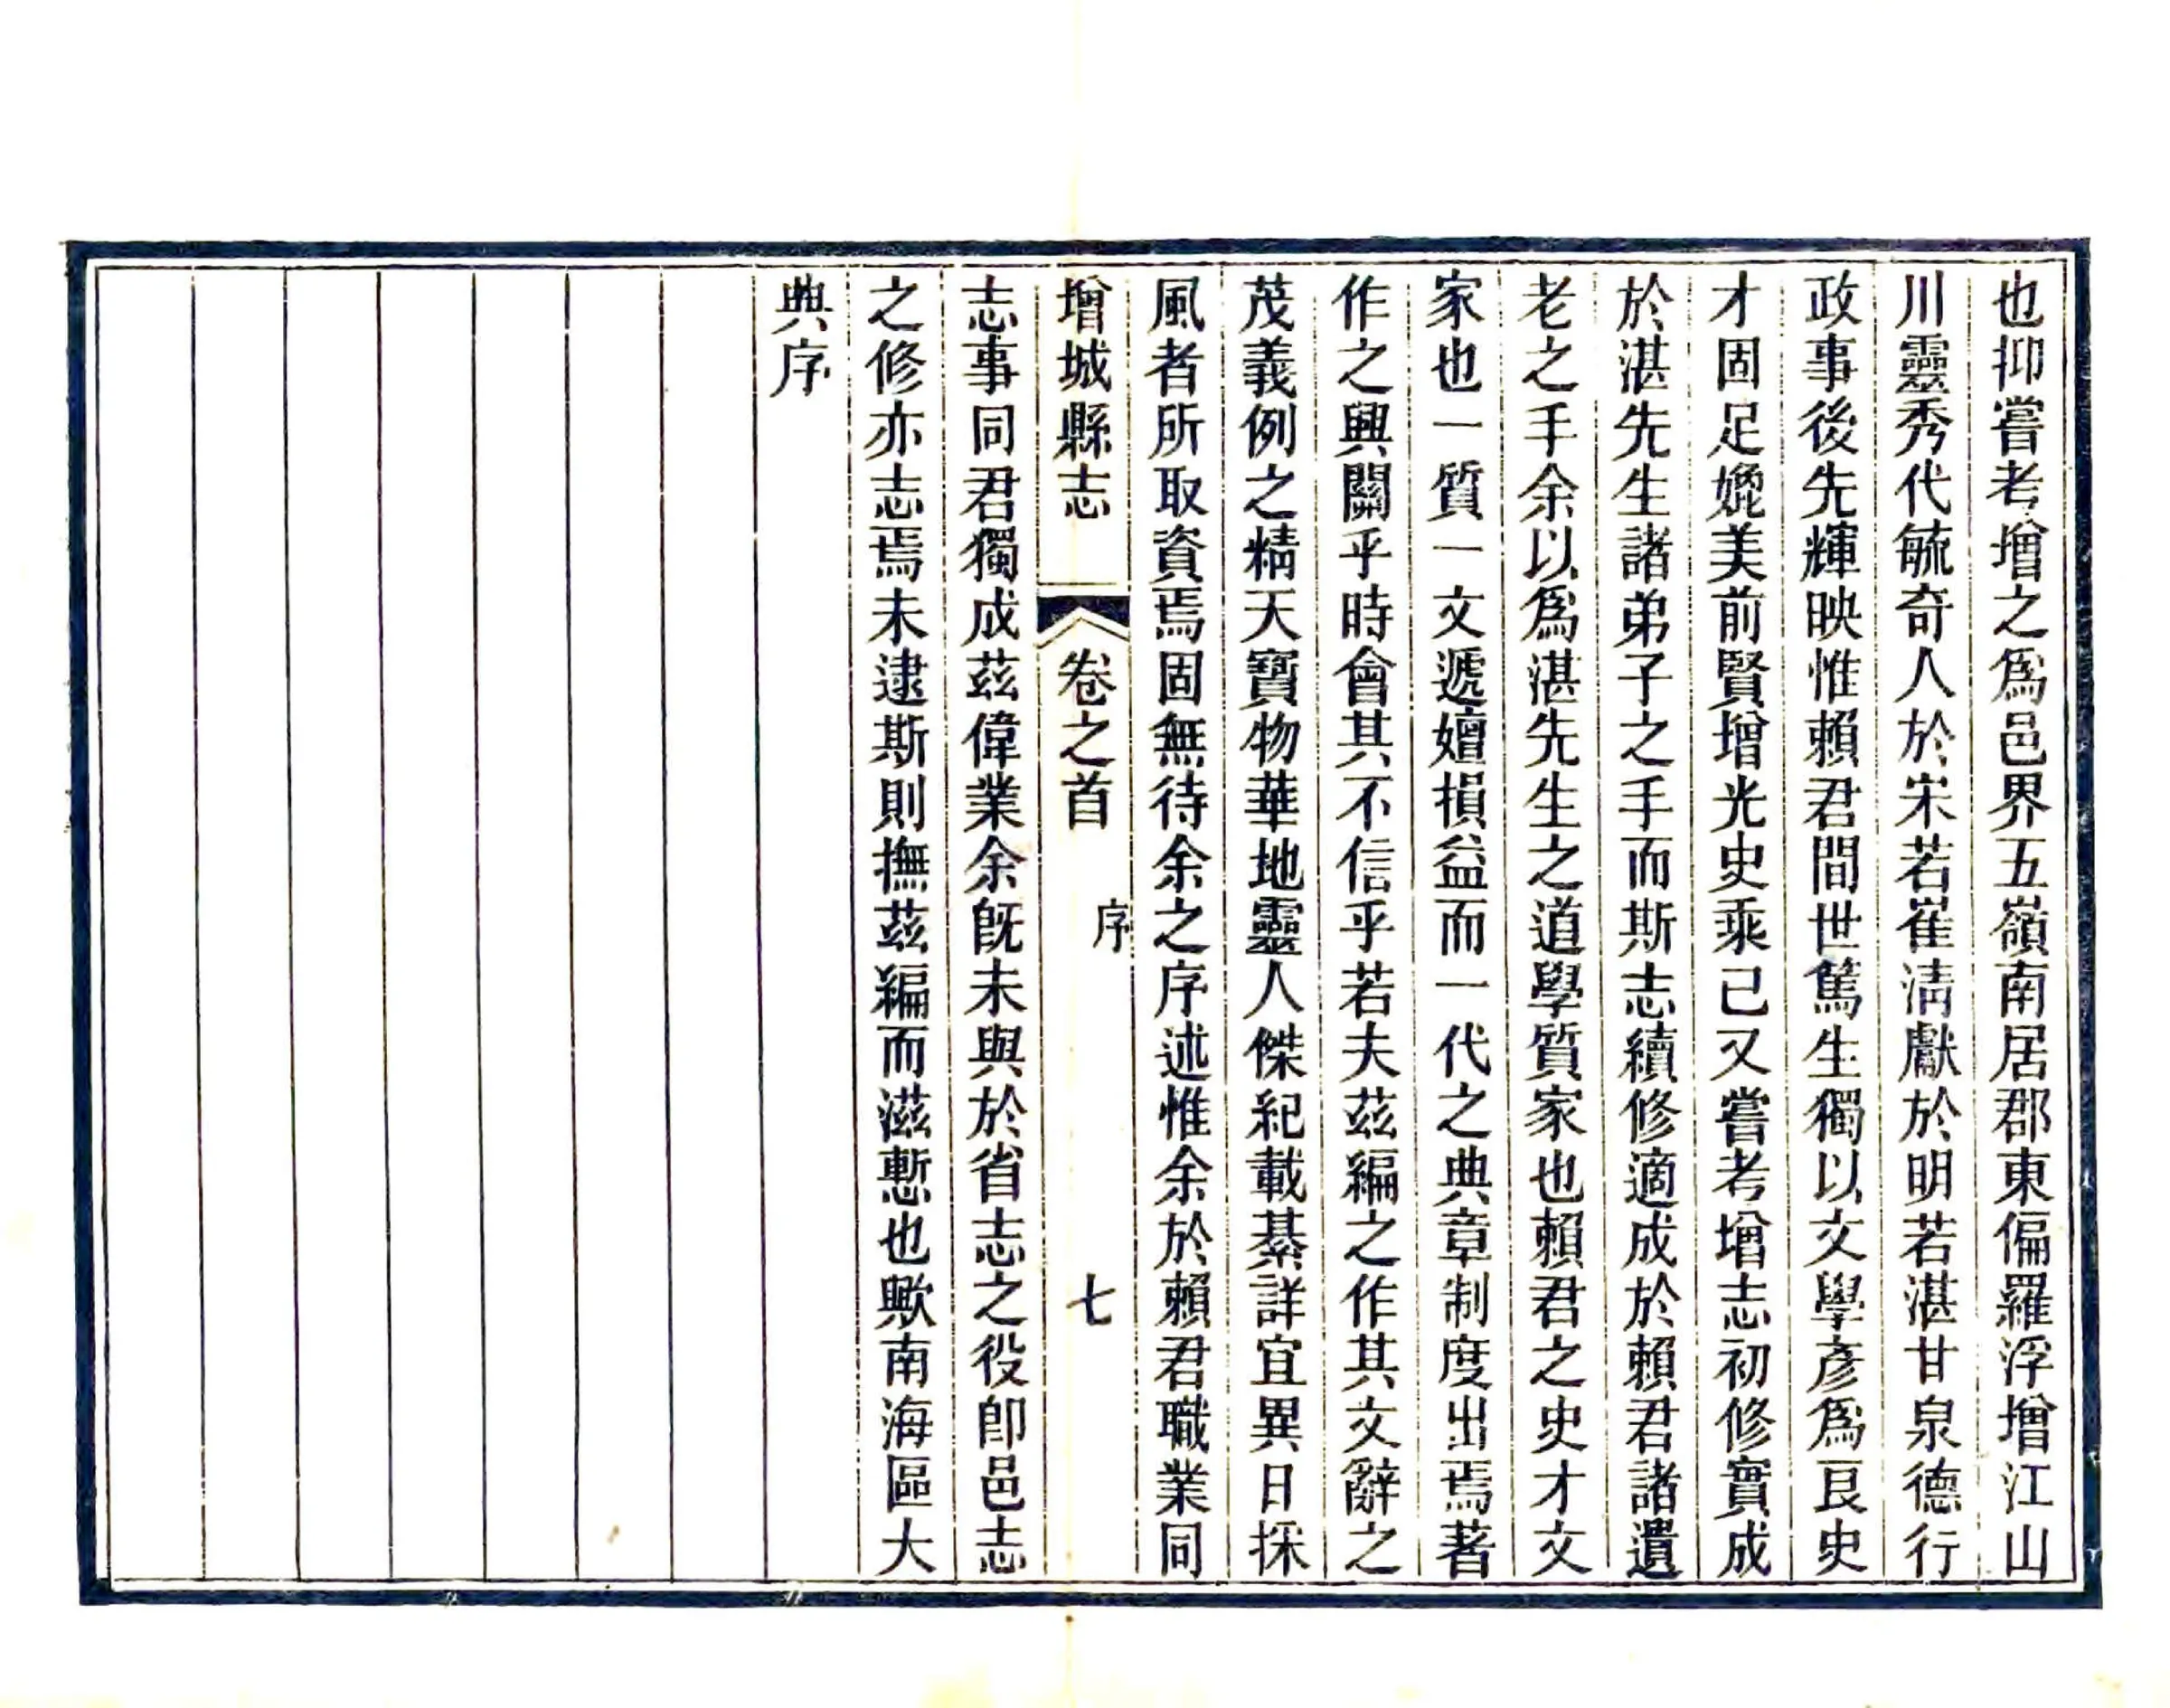 也抑嘗考增之爲邑界五嶺南居郡東偏羅浮增江山
川靈秀代毓奇人於宋若崔淸獻於明若湛甘泉德行
政事後先輝映惟賴君間世篤生獨以文學彥爲良史
才固足媲美前賢增光史乘已又嘗考增志初修實成
於湛先生諸弟子之手而斯志續修適成於賴君諸遺
老之手余以爲湛先生之道學質家也賴君之史才文
家也一質一文遞嬗損益而一代之典章制度出焉著
作之興關乎時會其不信乎若夫茲編之作其文辭之
茂義例之精天寶物華地靈人傑紀載綦詳宜異日採
風者所取資焉固無待余之序述惟余於賴君職業同
增城縣志 卷之首 序 七
志事同君獨成茲偉業余旣未與於省志之役卽邑志
之修亦志焉未逮斯則撫茲編而滋慙也歟南海區大
典序